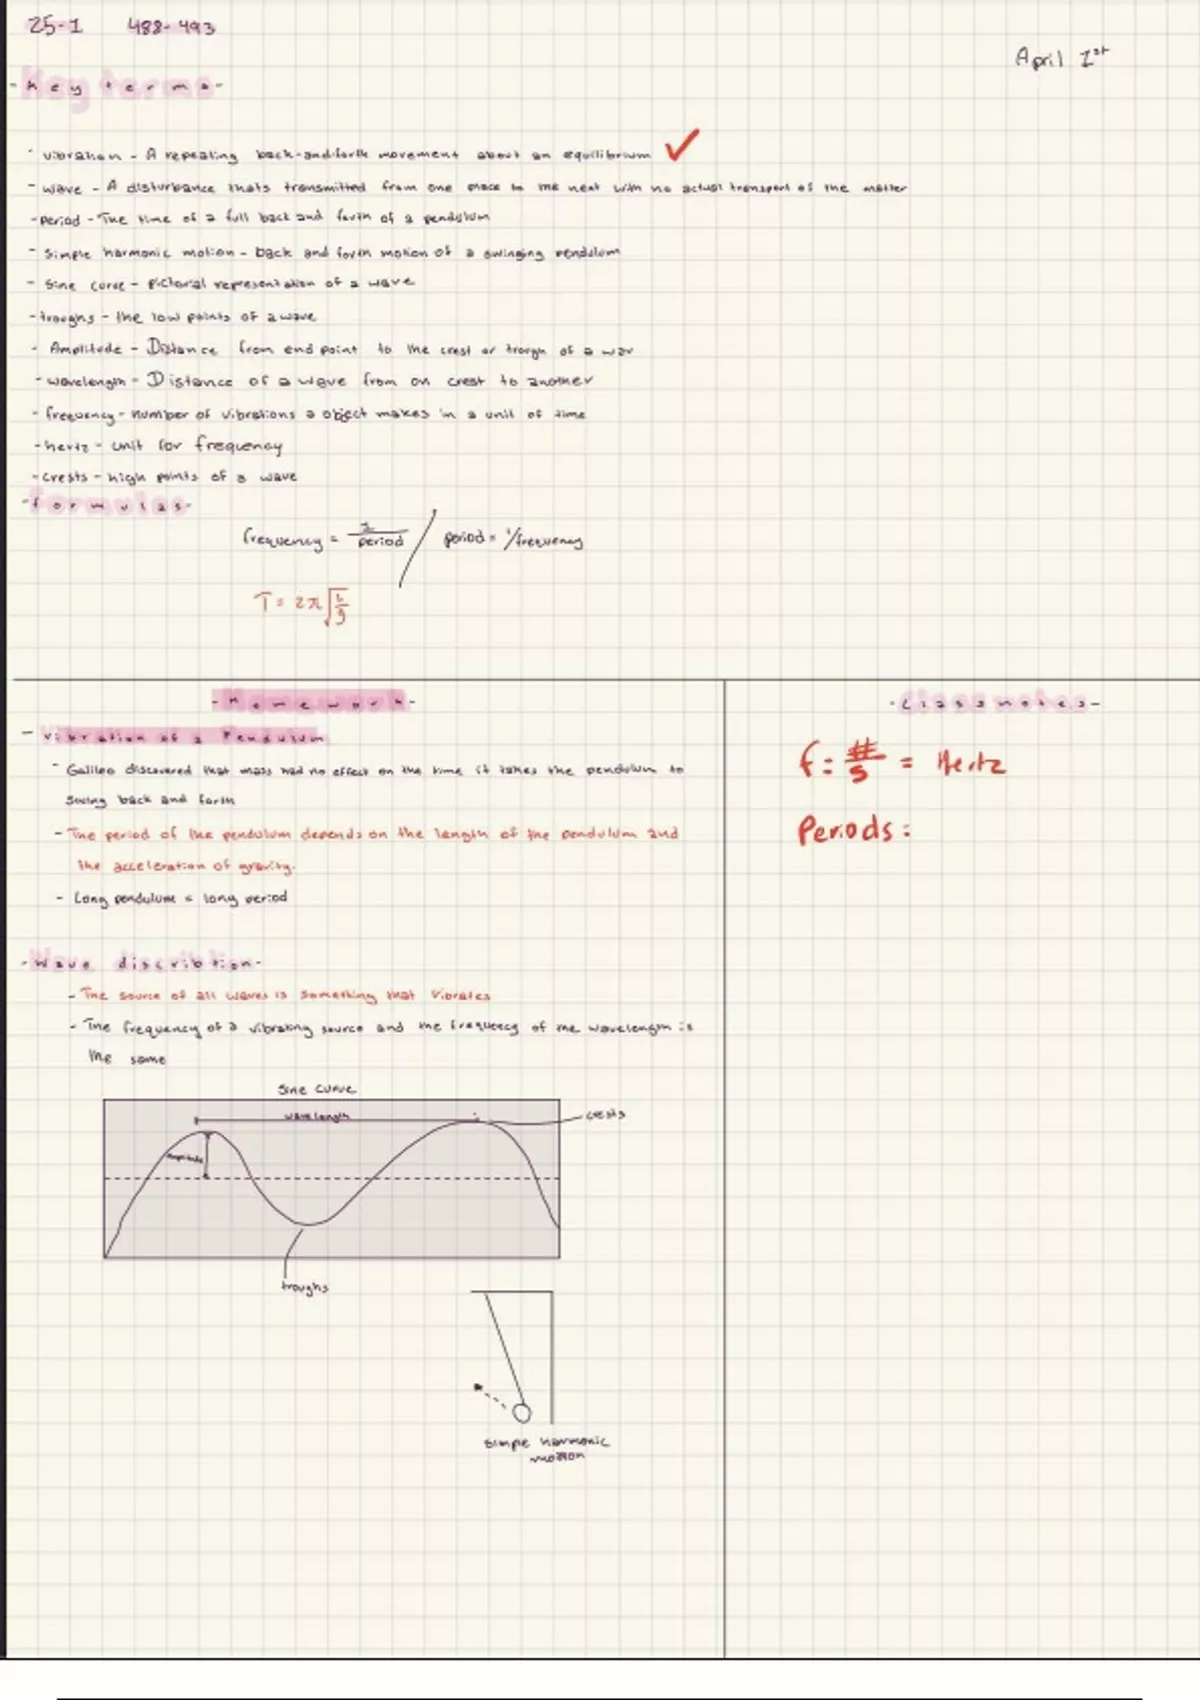 25-1 488-493
April 1st
- Key terms -
- vibration - A repeating back-and-forth movement about an equilibrium ✓
- wave - A disturbance thats transmitted from one place to the next with no actual transport of the matter
- period - The time of a full back and forth of a pendulum
- simple harmonic motion - back and forth motion of a swinging pendulum
- Sine curve - pictorial representation of a wave
- troughs - the low points of a wave
- Amplitude - Distance from end point to the crest or trough of a wav
- wavelength - Distance of a wave from on crest to another
- frequency - number of vibrations a object makes in a unit of time
- hertz - unit for frequency
- crests - high points of a wave
- formulas -
frequency = 1/period / period = 1/frequency
T = 2π√L/g
- Homework -
- Vibration of a Pendulum
- Galileo discovered that mass had no effect on the time it takes the pendulum to
swing back and forth
- The period of the pendulum depends on the length of the pendulum and
the acceleration of gravity.
- Long pendulum = long period
- Wave discribtion -
- The source of all waves is something that vibrates
- The frequency of a vibrating source and the frequency of the wavelength is
the same
Sine curve
wavelength
crests
Amplitude
troughs
simple harmonic
motion
- Class notes -
f = #/s = Hertz
Periods: